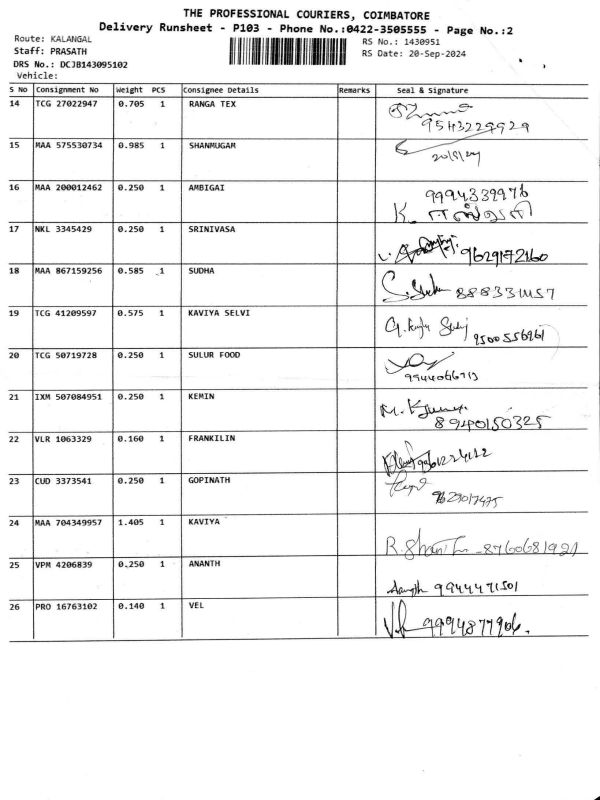 THE PROFESSIONAL COURIERS, COIMBATORE
Delivery Runsheet - P103 - Phone No.:0422-3505555 - Page No.:2
Route: KALANGAL
RS No.: 1430951
Staff: PRASATH
RS Date: 20-Sep-2024
DRS No.: DCJB143095102
Vehicle:
S No Consignment No Weight PCS Consignee Details Remarks Seal & Signature
14 TCG 27022947 0.705 1 RANGA TEX
9543229929
15 MAA 575530734 0.985 1 SHANMUGAM
20/9/24
16 MAA 200012462 0.250 1 AMBIGAI
9994339976
K.
17 NKL 3345429 0.250 1 SRINIVASA
9629172160
18 MAA 867159256 0.585 1 SUDHA
S.
19 TCG 41209597 0.575 1 KAVIYA SELVI
9500556961
20 TCG 50719728 0.250 1 SULUR FOOD
21 IXM 507084951 0.250 1 KEMIN
M.
8940150325
22 VLR 1063329 0.160 1 FRANKILIN
23 CUD 3373541 0.250 1 GOPINATH
24 MAA 704349957 1.405 1 KAVIYA
R. Shanthi - 8760681921
25 VPM 4206839 0.250 1 ANANTH
9944471501
26 PRO 16763102 0.140 1 VEL
9994877906.